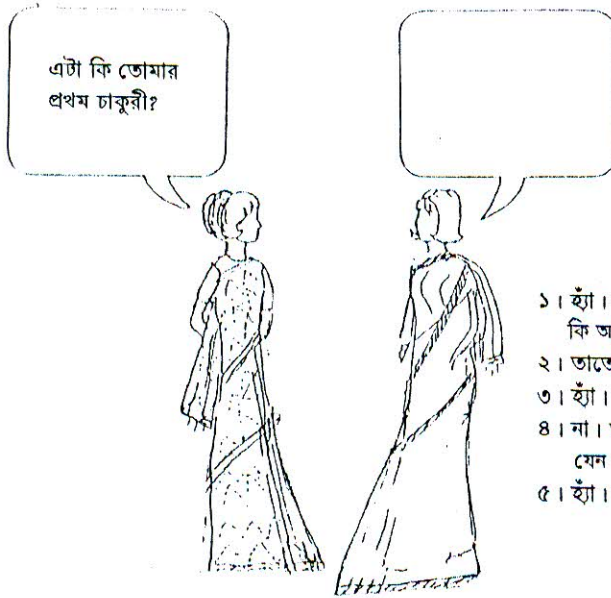 এটা কি তোমার
প্রথম চাকুরী?
১। হ্যাঁ।
কি
২। তাতে
৩। হ্যাঁ।
৪। না।
যেন
৫। হ্যাঁ।